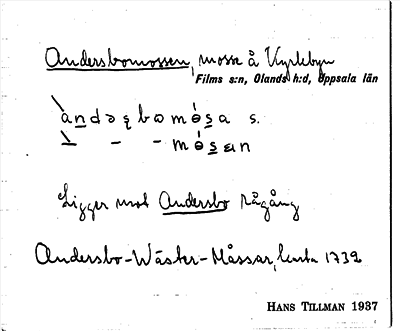 Andersbomossen, mosse å Kyrlebyn
Films s:n, Olands h:d, Uppsala län
àndəʂbomósa s.
– – mósɛn
Ligger mot Andersbo rågång
Andersbo-Wäster-Måssar, karta 1739
HANS TILLMAN 1937